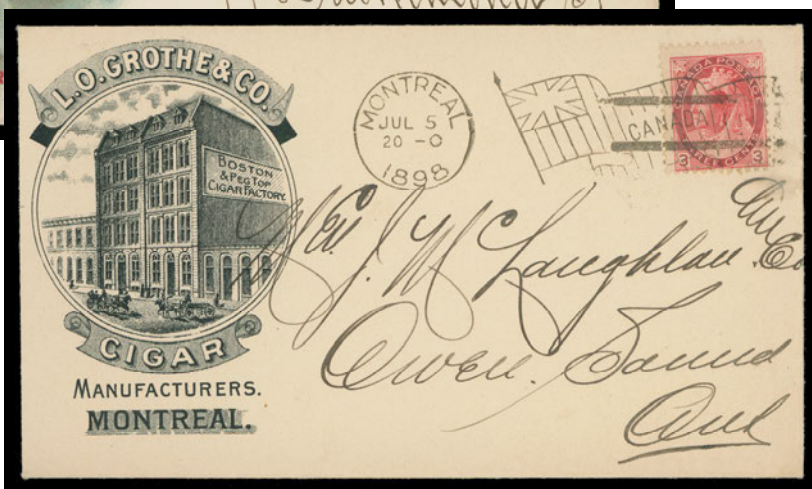 L.O. GROTHE & CO.
BOSTON
& PEG TOP
CIGAR FACTORY
CIGAR
MANUFACTURERS.
MONTREAL.
MONTREAL
JUL 5
20 - 0
1898
CANADA
CANADA POSTAGE
3 THREE CENTS 3
J. McLaughlan
Owen Sound
Ont